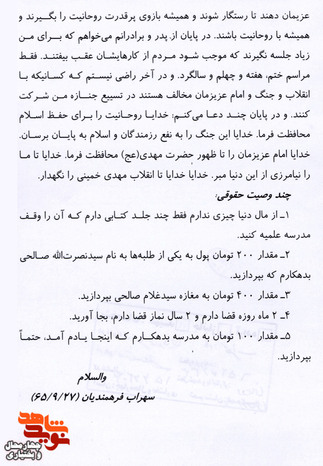 عزیمان دهند تا رستگار شوند و همیشه بازوی پرقدرت روحانیت را بگیرند و
همیشه با روحانیت باشند. در پایان از پدر و برادرانم می‌خواهم که برای من
زیاد جلسه نگیرند که موجب شود مردم از کارهایشان عقب بیفتند. فقط
مراسم ختم، هفته و چهلم و سالگرد. و در آخر راضی نیستم که کسانیکه با
انقلاب و جنگ و امام عزیزمان مخالف هستند در تسییع جنازه من شرکت
کنند. و در پایان چند دعا می‌کنم: خدایا روحانیت را برای حفظ اسلام
محافظت فرما. خدایا این جنگ را به نفع رزمندگان و اسلام به پایان برسان.
خدایا امام عزیزمان را تا ظهور حضرت مهدی(عج) محافظت فرما. خدایا تا ما
را نیامرزی از این دنیا مبر. خدایا خدایا تا انقلاب مهدی خمینی را نگهدار.
چند وصیت حقوقی:
۱ـ از مال دنیا چیزی ندارم فقط چند جلد کتابی دارم که آن را وقف
مدرسه علمیه کنید.
۲ـ مقدار ۲۰۰ تومان پول به یکی از طلبه‌ها به نام سیدنصرت‌الله صالحی
بدهکارم که بپردازید.
۳ـ مقدار ۴۰۰ تومان به مغازه سیدغلام صالحی بپردازید.
۴ـ ۲ ماه روزه قضا دارم و ۲ سال نماز قضا دارم، بجا آورید.
۵ـ مقدار ۱۰۰ تومان به مدرسه بدهکارم که اینجا یادم آمد، حتماً
بپردازید.
والسلام
سهراب فرهمندیان (۶۵/۹/۲۷)
نوید شاهد
چهارمحال و بختیاری